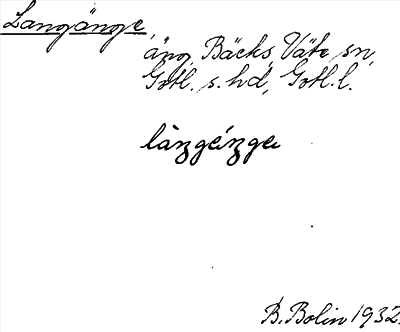 Langänge,
äng, Bäcks, Väte sn,
Gotl. s. hd, Gotl. l.
làŋgéŋge
B. Bolin 1932.